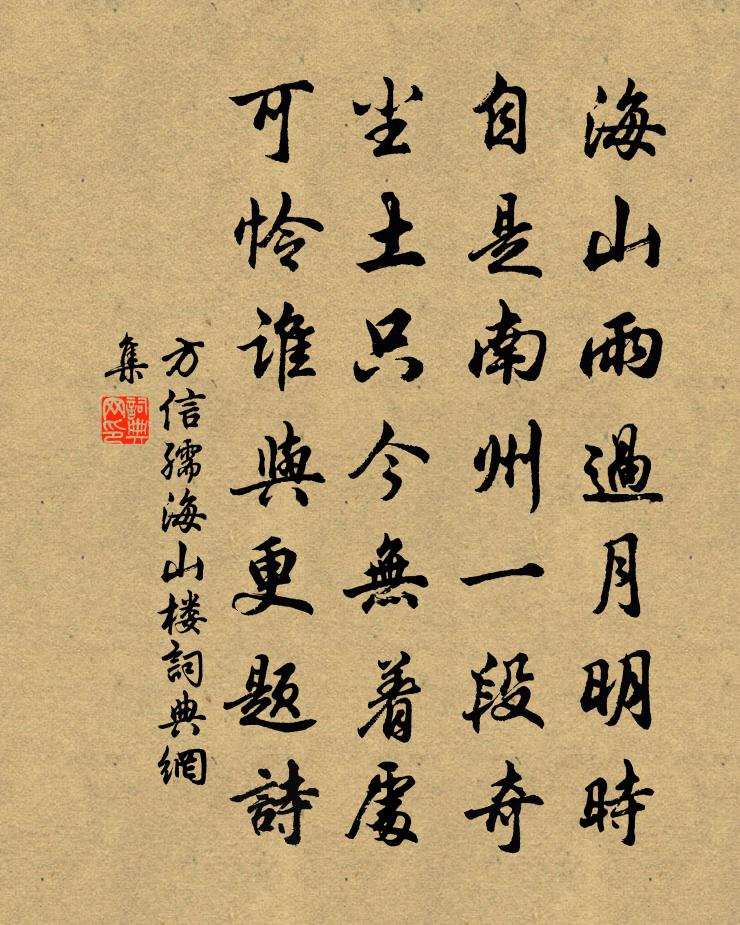 海山雨過月明時
自是南州一段奇
坐土只今無着處
可怜誰與更題詩
方信孺海山楼詞典網
集
詞典网印